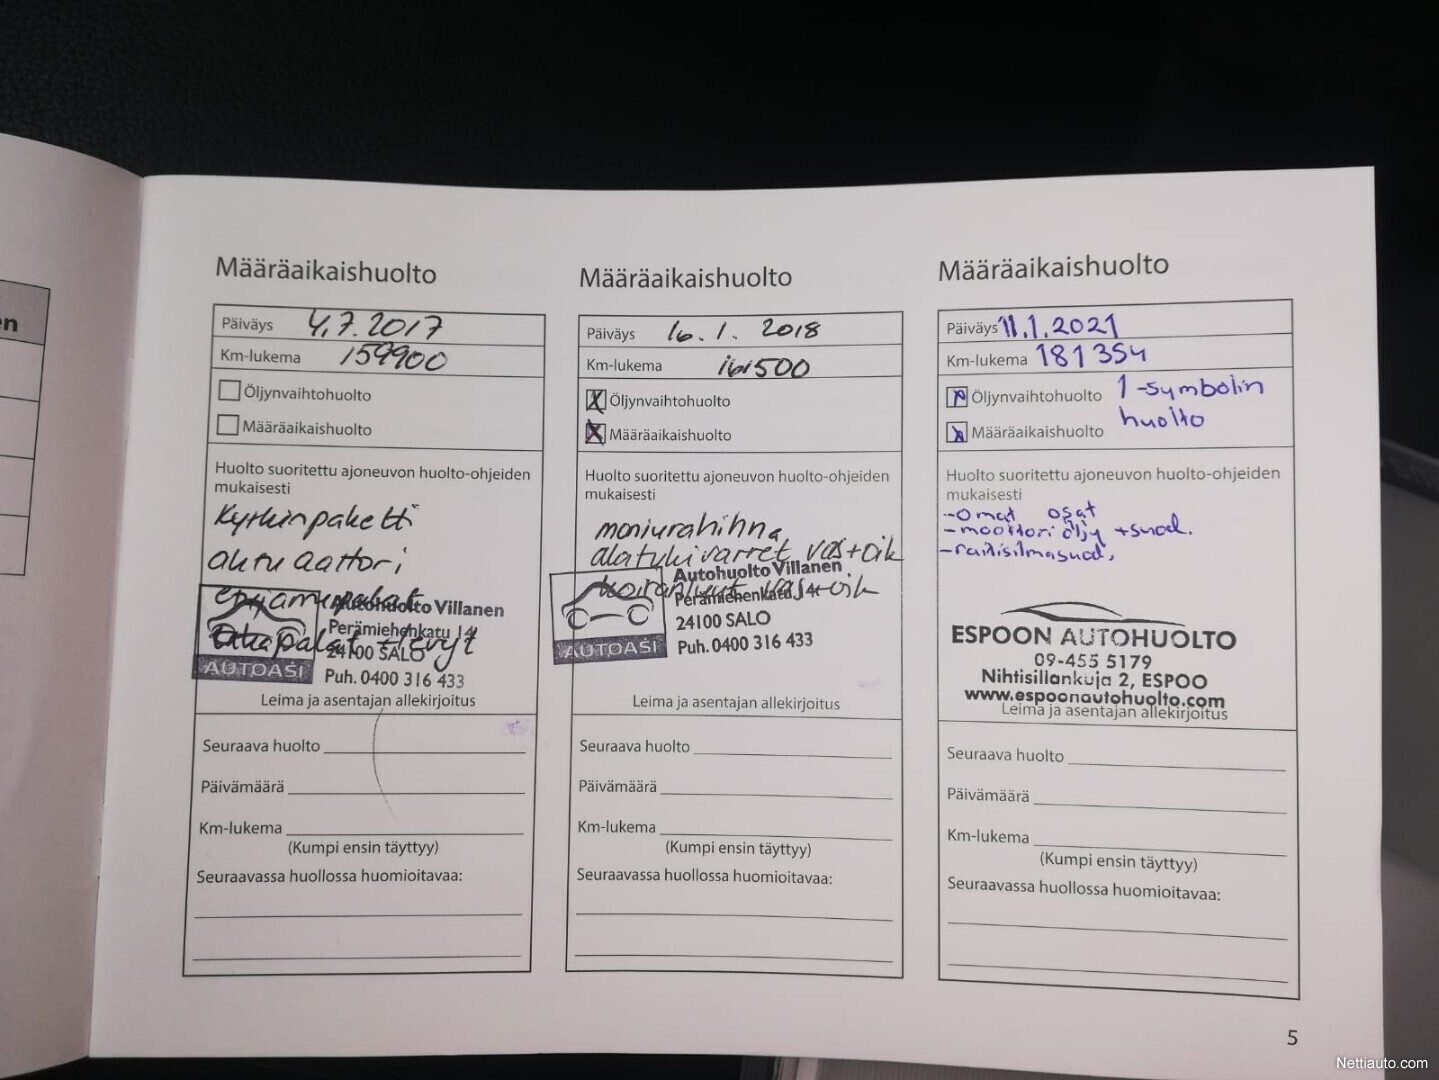 en
Määräaikaishuolto
Päiväys 4.7.2017
Km-lukema 159900
Öljynvaihtohuolto
Määräaikaishuolto
Huolto suoritettu ajoneuvon huolto-ohjeiden
mukaisesti
Kytkinpaketti
aktuaattori
Autohuolto Villanen
Perämiehenkatu 14
24100 SALO
AUTOASI
Puh. 0400 316 433
Leima ja asentajan allekirjoitus
Seuraava huolto
Päivämäärä
Km-lukema
(Kumpi ensin täyttyy)
Seuraavassa huollossa huomioitavaa:
Määräaikaishuolto
Päiväys 16.1. 2018
Km-lukema 161500
X Öljynvaihtohuolto
X Määräaikaishuolto
Huolto suoritettu ajoneuvon huolto-ohjeiden
mukaisesti
moniurahihna
alatukivarret vas+oik
Autohuolto Villanen
Perämiehenkatu 14
24100 SALO
AUTOASI
Puh. 0400 316 433
Leima ja asentajan allekirjoitus
Seuraava huolto
Päivämäärä
Km-lukema
(Kumpi ensin täyttyy)
Seuraavassa huollossa huomioitavaa:
Määräaikaishuolto
Päiväys 11.1.2021
Km-lukema 181354
Öljynvaihtohuolto 1-symbolin
Määräaikaishuolto huolto
Huolto suoritettu ajoneuvon huolto-ohjeiden
mukaisesti
-omat osat
-moottoriöljy +suod.
-raitisilmasuod.
ESPOON AUTOHUOLTO
09-455 5179
Nihtisillankuja 2, ESPOO
www.espoonautohuolto.com
Leima ja asentajan allekirjoitus
Seuraava huolto
Päivämäärä
Km-lukema
(Kumpi ensin täyttyy)
Seuraavassa huollossa huomioitavaa:
5
Nettiauto.com